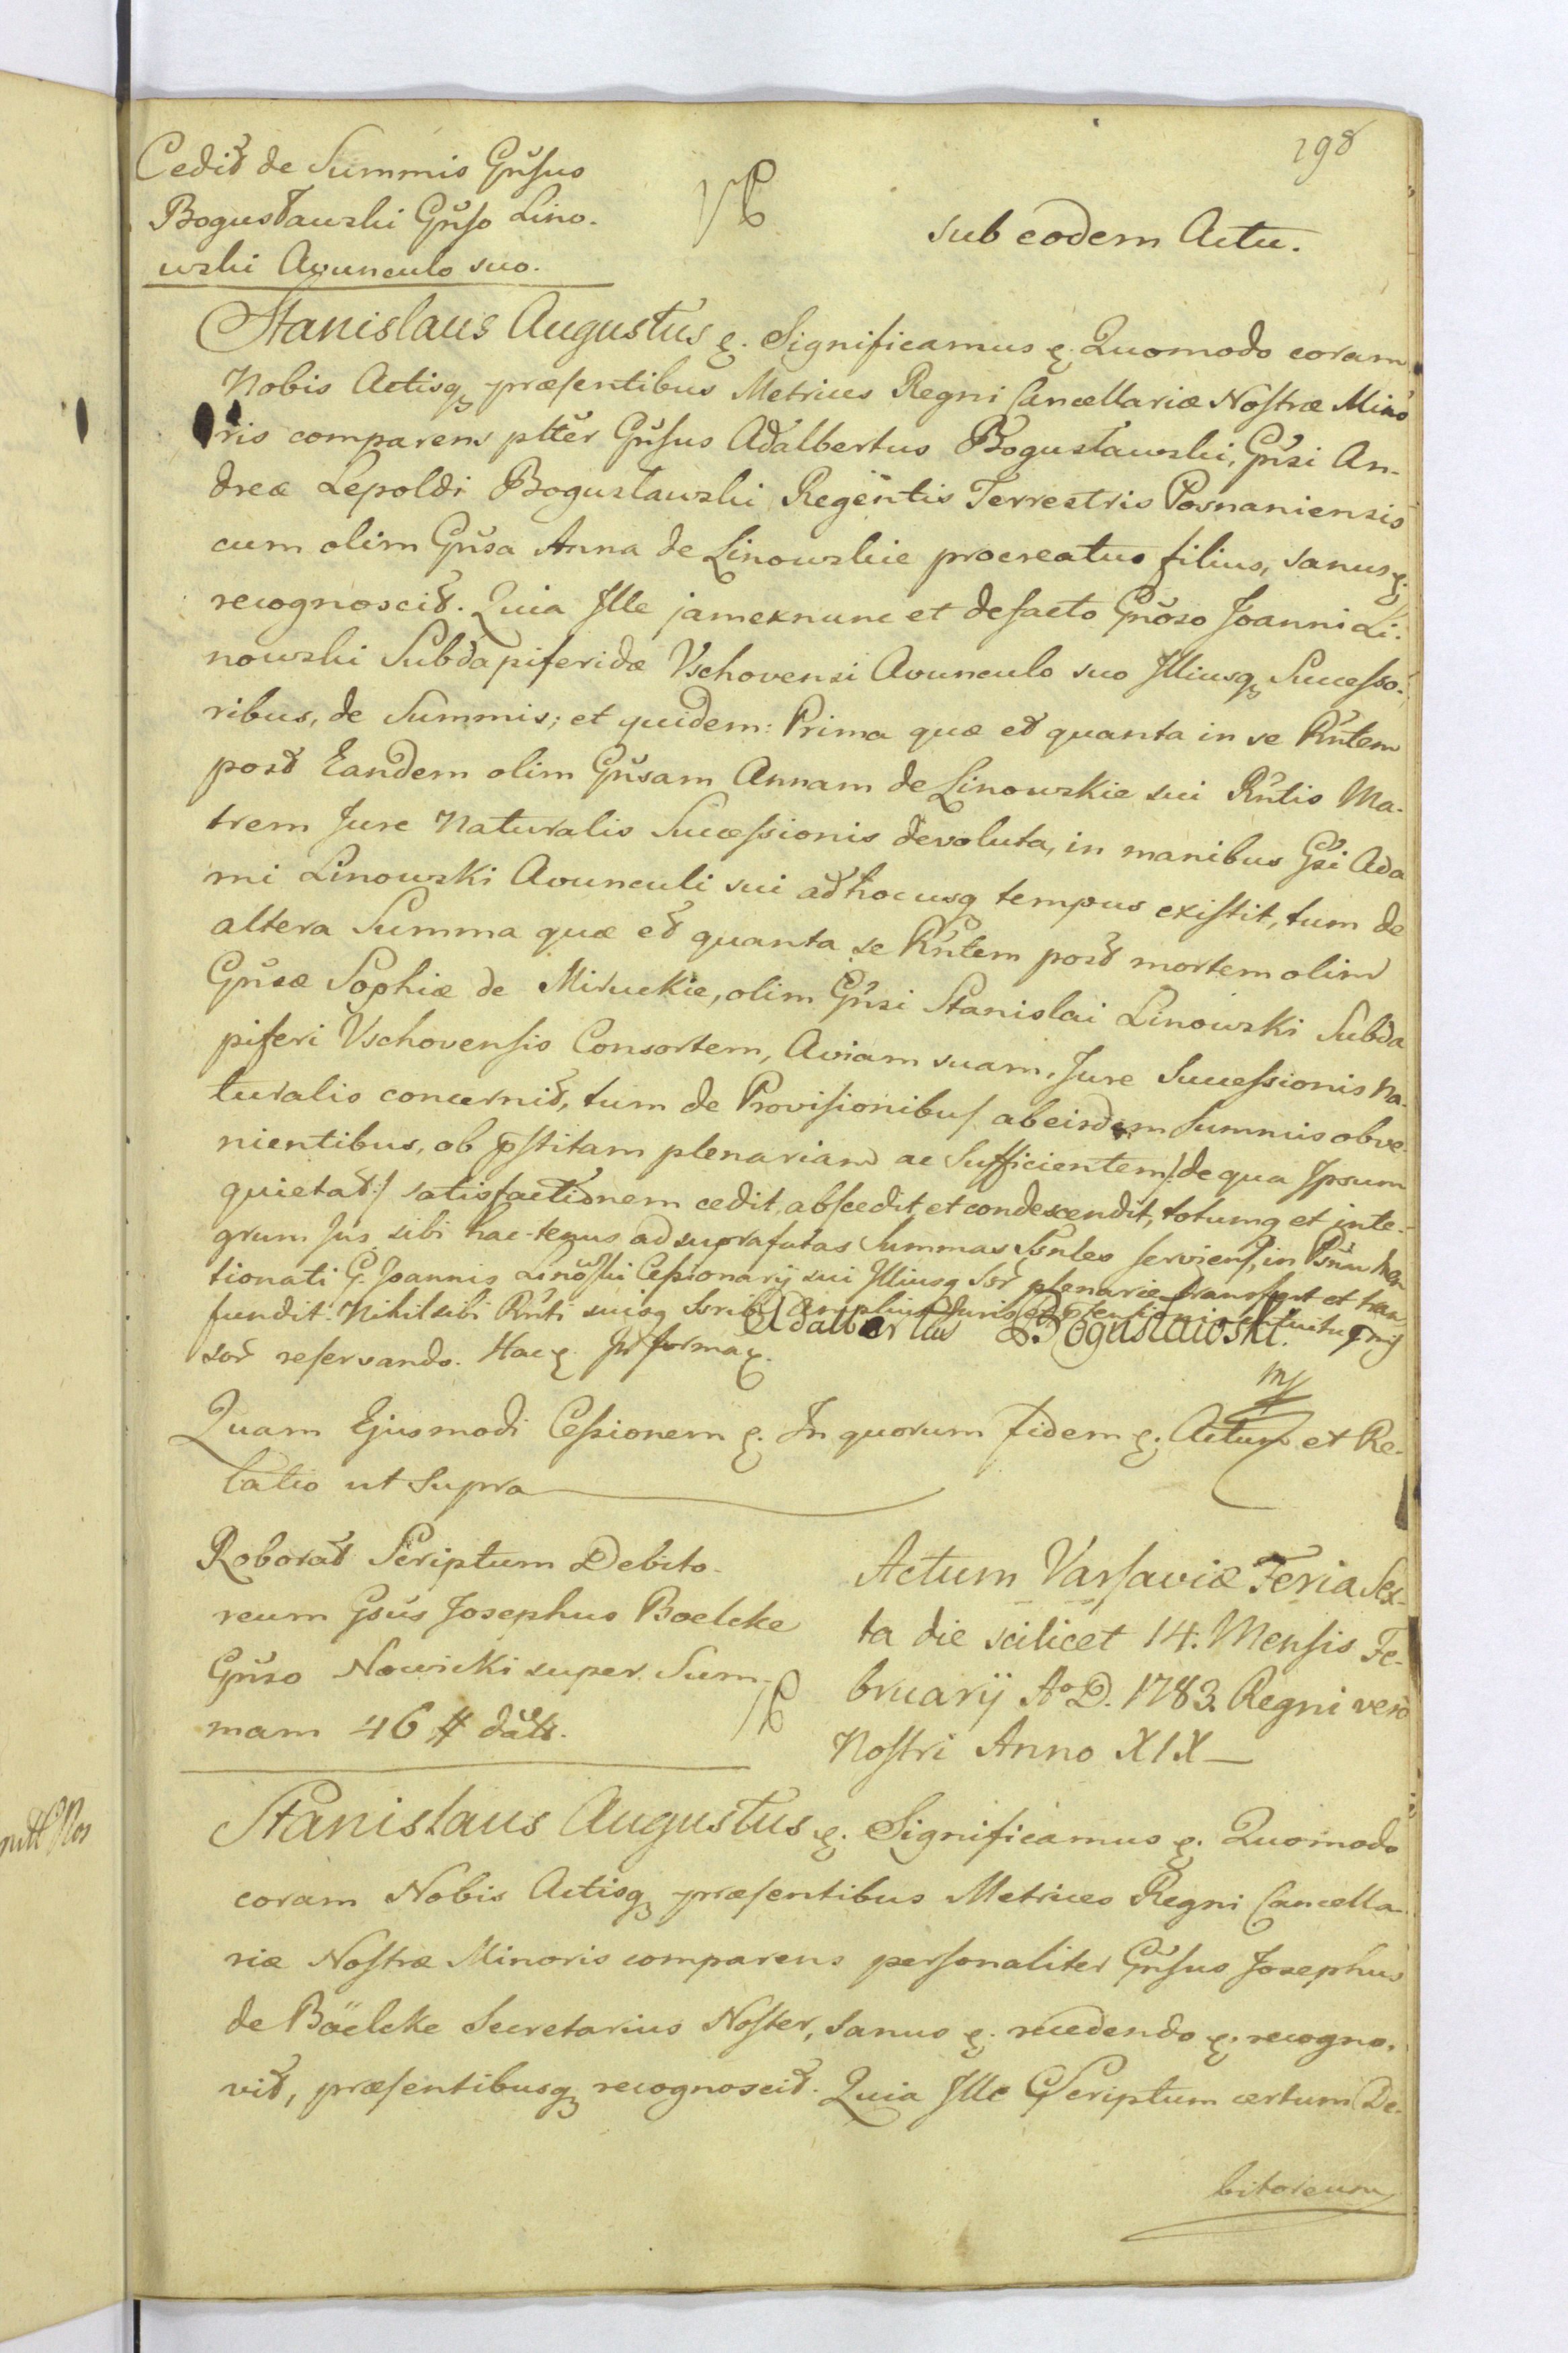 198
Cedit de Summis Gnsus
Bogusławski Gnso Lino-
wski Avunculo suo.
sub eodem Actu.
Stanislaus Augustus &. Significamus &. Quomodo coram
Nobis Actisq præsentibus Metrices Regni Cancellariæ Nostræ Mino
ris comparens plter Gnsus Adalbertus Bogusławski, Gnsi An-
dreæ Lepoldi Bogusławski Regentis Terrestris Posnaniensis
cum olim Gnsa Anna de Linowskie procreatus filius, sanus &.
recognoscit. Quia Ille jam exnunc et defacto Gnoso Joanni Li-
nowski Subdapiferidæ Vschovensi Avunculo suo Illiusq Successo-
ribus, de Summis; et quidem: Prima quæ et quanta in se Rntem
post Eandem olim Gnsam Annam de Linowskie sui Rntis Ma-
trem Jure Naturalis Successionis devoluta, in manibus Gsi Ada
mi Linowski Avunculi sui ad hocusq tempus existit, tum de
altera Summa quæ et quanta se Rntem post mortem olim
Gnsæ Sophiæ de Miruckie, olim Gnsi Stanislai Linowski Subda
piferi Vschovensis Consortem, Aviam suam, Jure Successionis Na-
turalis concernit, tum de Provisionibus ab eisdem Summis obve-
nientibus, ob pstitam plenariam ac Sufficientem /: de qua Ipsum
quietat :/ satisfactionem cedit, abscedit et condescendit, totumq et inte-
grum Jus sibi hac-tenus ad suprafatas Summas Psntes serviens, in Psnam
tionati G. Joannis Linowski Cessionarij sui Illiusq Sor plenarie transfert et trans
fundit. Nihil sibi Rnti suisq Sorib amplius Juris
sor reservando. Hac &. In forma &.
Adalbertus Bogusławski.
mp
Quam Ejusmodi Cessionem &. In quorum fidem &. Actum et Re-
latio ut Supra
Roborat Scriptum Debito-
reum Gsus Josephus Boelcke
Gnso Nowicki super Sum-
mam 46 # dats.
Actum Varsaviæ Feria Sex-
ta die scilicet 14. Mensis Fe-
bruarij Ao D. 1783. Regni vero
Nostri Anno XIX
Stanislaus Augustus &. Significamus &. Quomodo
coram Nobis Actisq præsentibus Metrices Regni Cancella-
riæ Nostræ Minoris comparens personaliter Gnsus Josephus
de Böelcke Secretarius Noster, sanus &. recedendo &. recogno-
vit, præsentibusq recognoscit. Quia Ille Scriptum certum De-
bitoreum